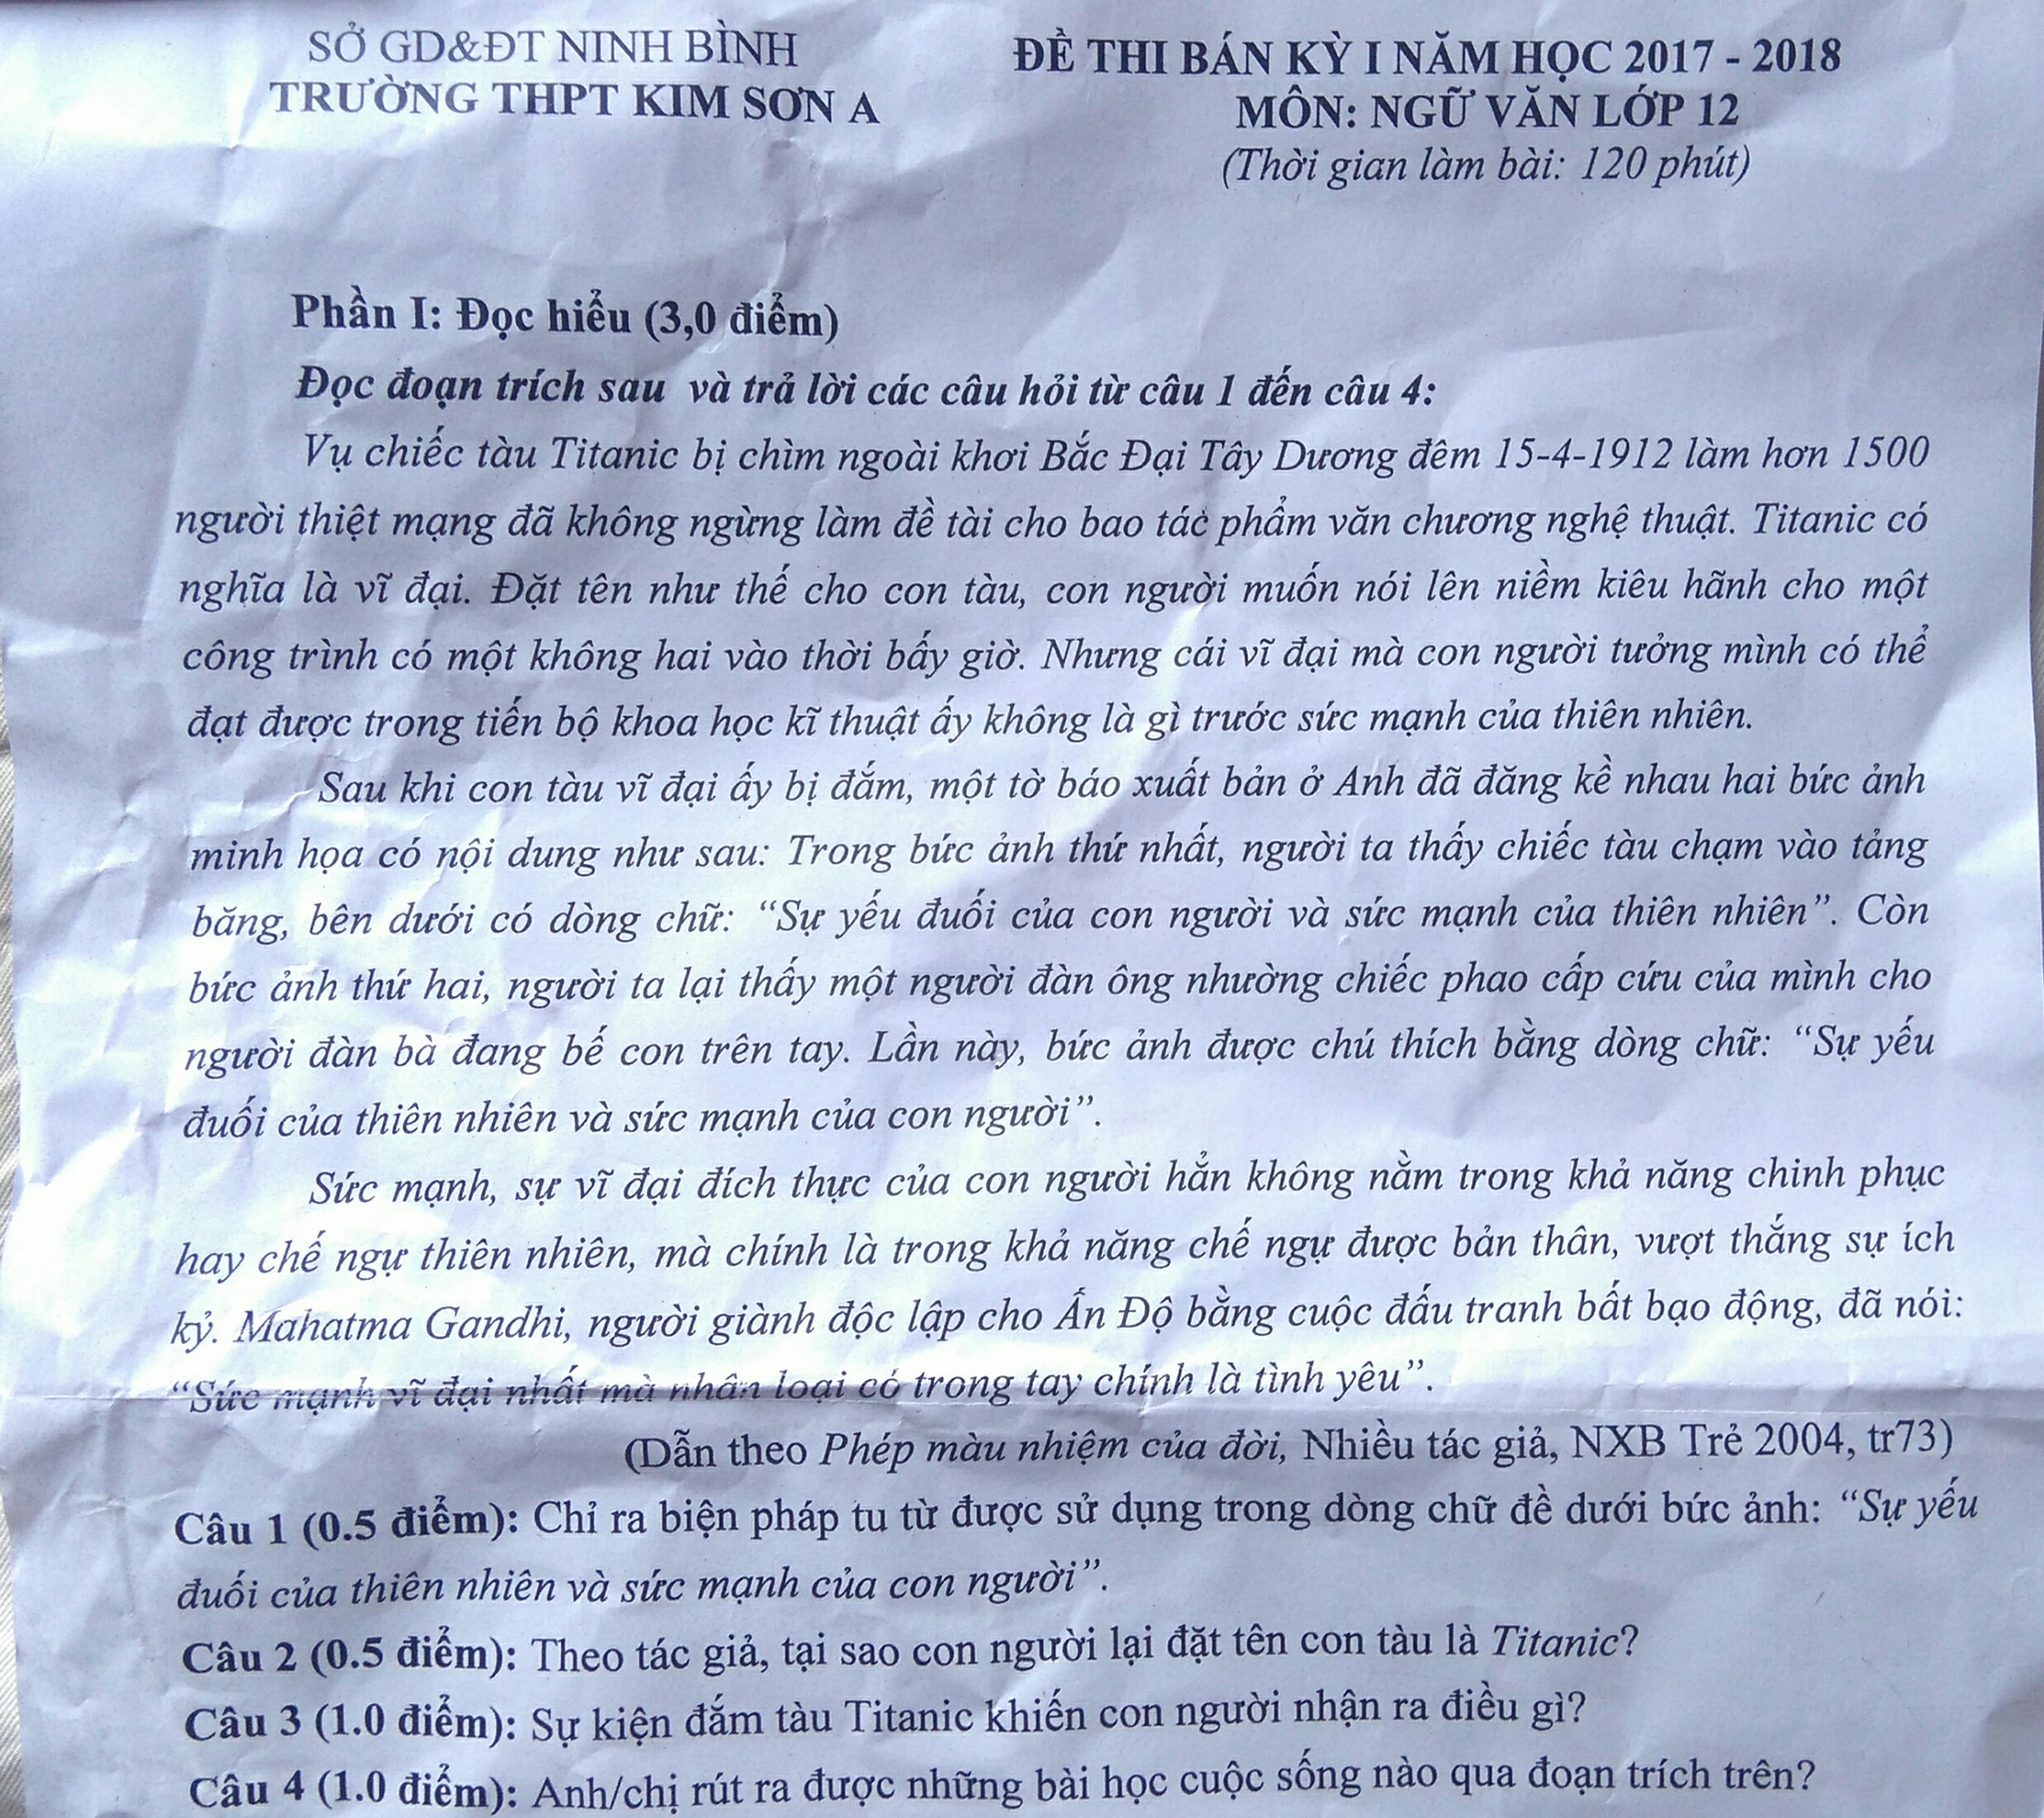 SỞ GD&ĐT NINH BÌNH
TRƯỜNG THPT KIM SƠN A
ĐỀ THI BÁN KỲ I NĂM HỌC 2017 - 2018
MÔN: NGỮ VĂN LỚP 12
(Thời gian làm bài: 120 phút)
Phần I: Đọc hiểu (3,0 điểm)
Đọc đoạn trích sau và trả lời các câu hỏi từ câu 1 đến câu 4:
Vụ chiếc tàu Titanic bị chìm ngoài khơi Bắc Đại Tây Dương đêm 15-4-1912 làm hơn 1500
người thiệt mạng đã không ngừng làm đề tài cho bao tác phẩm văn chương nghệ thuật. Titanic có
nghĩa là vĩ đại. Đặt tên như thế cho con tàu, con người muốn nói lên niềm kiêu hãnh cho một
công trình có một không hai vào thời bấy giờ. Nhưng cái vĩ đại mà con người tưởng mình có thể
đạt được trong tiến bộ khoa học kĩ thuật ấy không là gì trước sức mạnh của thiên nhiên.
Sau khi con tàu vĩ đại ấy bị đắm, một tờ báo xuất bản ở Anh đã đăng kề nhau hai bức ảnh
minh họa có nội dung như sau: Trong bức ảnh thứ nhất, người ta thấy chiếc tàu chạm vào tảng
băng, bên dưới có dòng chữ: “Sự yếu đuối của con người và sức mạnh của thiên nhiên”. Còn
bức ảnh thứ hai, người ta lại thấy một người đàn ông nhường chiếc phao cấp cứu của mình cho
người đàn bà đang bế con trên tay. Lần này, bức ảnh được chú thích bằng dòng chữ: “Sự yếu
đuối của thiên nhiên và sức mạnh của con người”.
Sức mạnh, sự vĩ đại đích thực của con người hẳn không nằm trong khả năng chinh phục
hay chế ngự thiên nhiên, mà chính là trong khả năng chế ngự được bản thân, vượt thắng sự ích
kỷ. Mahatma Gandhi, người giành độc lập cho Ấn Độ bằng cuộc đấu tranh bất bạo động, đã nói:
“Sức mạnh vĩ đại nhất mà nhân loại có trong tay chính là tình yêu”.
(Dẫn theo Phép màu nhiệm của đời, Nhiều tác giả, NXB Trẻ 2004, tr73)
Câu 1 (0.5 điểm): Chỉ ra biện pháp tu từ được sử dụng trong dòng chữ đề dưới bức ảnh: “Sự yếu
đuối của thiên nhiên và sức mạnh của con người”.
Câu 2 (0.5 điểm): Theo tác giả, tại sao con người lại đặt tên con tàu là Titanic?
Câu 3 (1.0 điểm): Sự kiện đắm tàu Titanic khiến con người nhận ra điều gì?
Câu 4 (1.0 điểm): Anh/chị rút ra được những bài học cuộc sống nào qua đoạn trích trên?